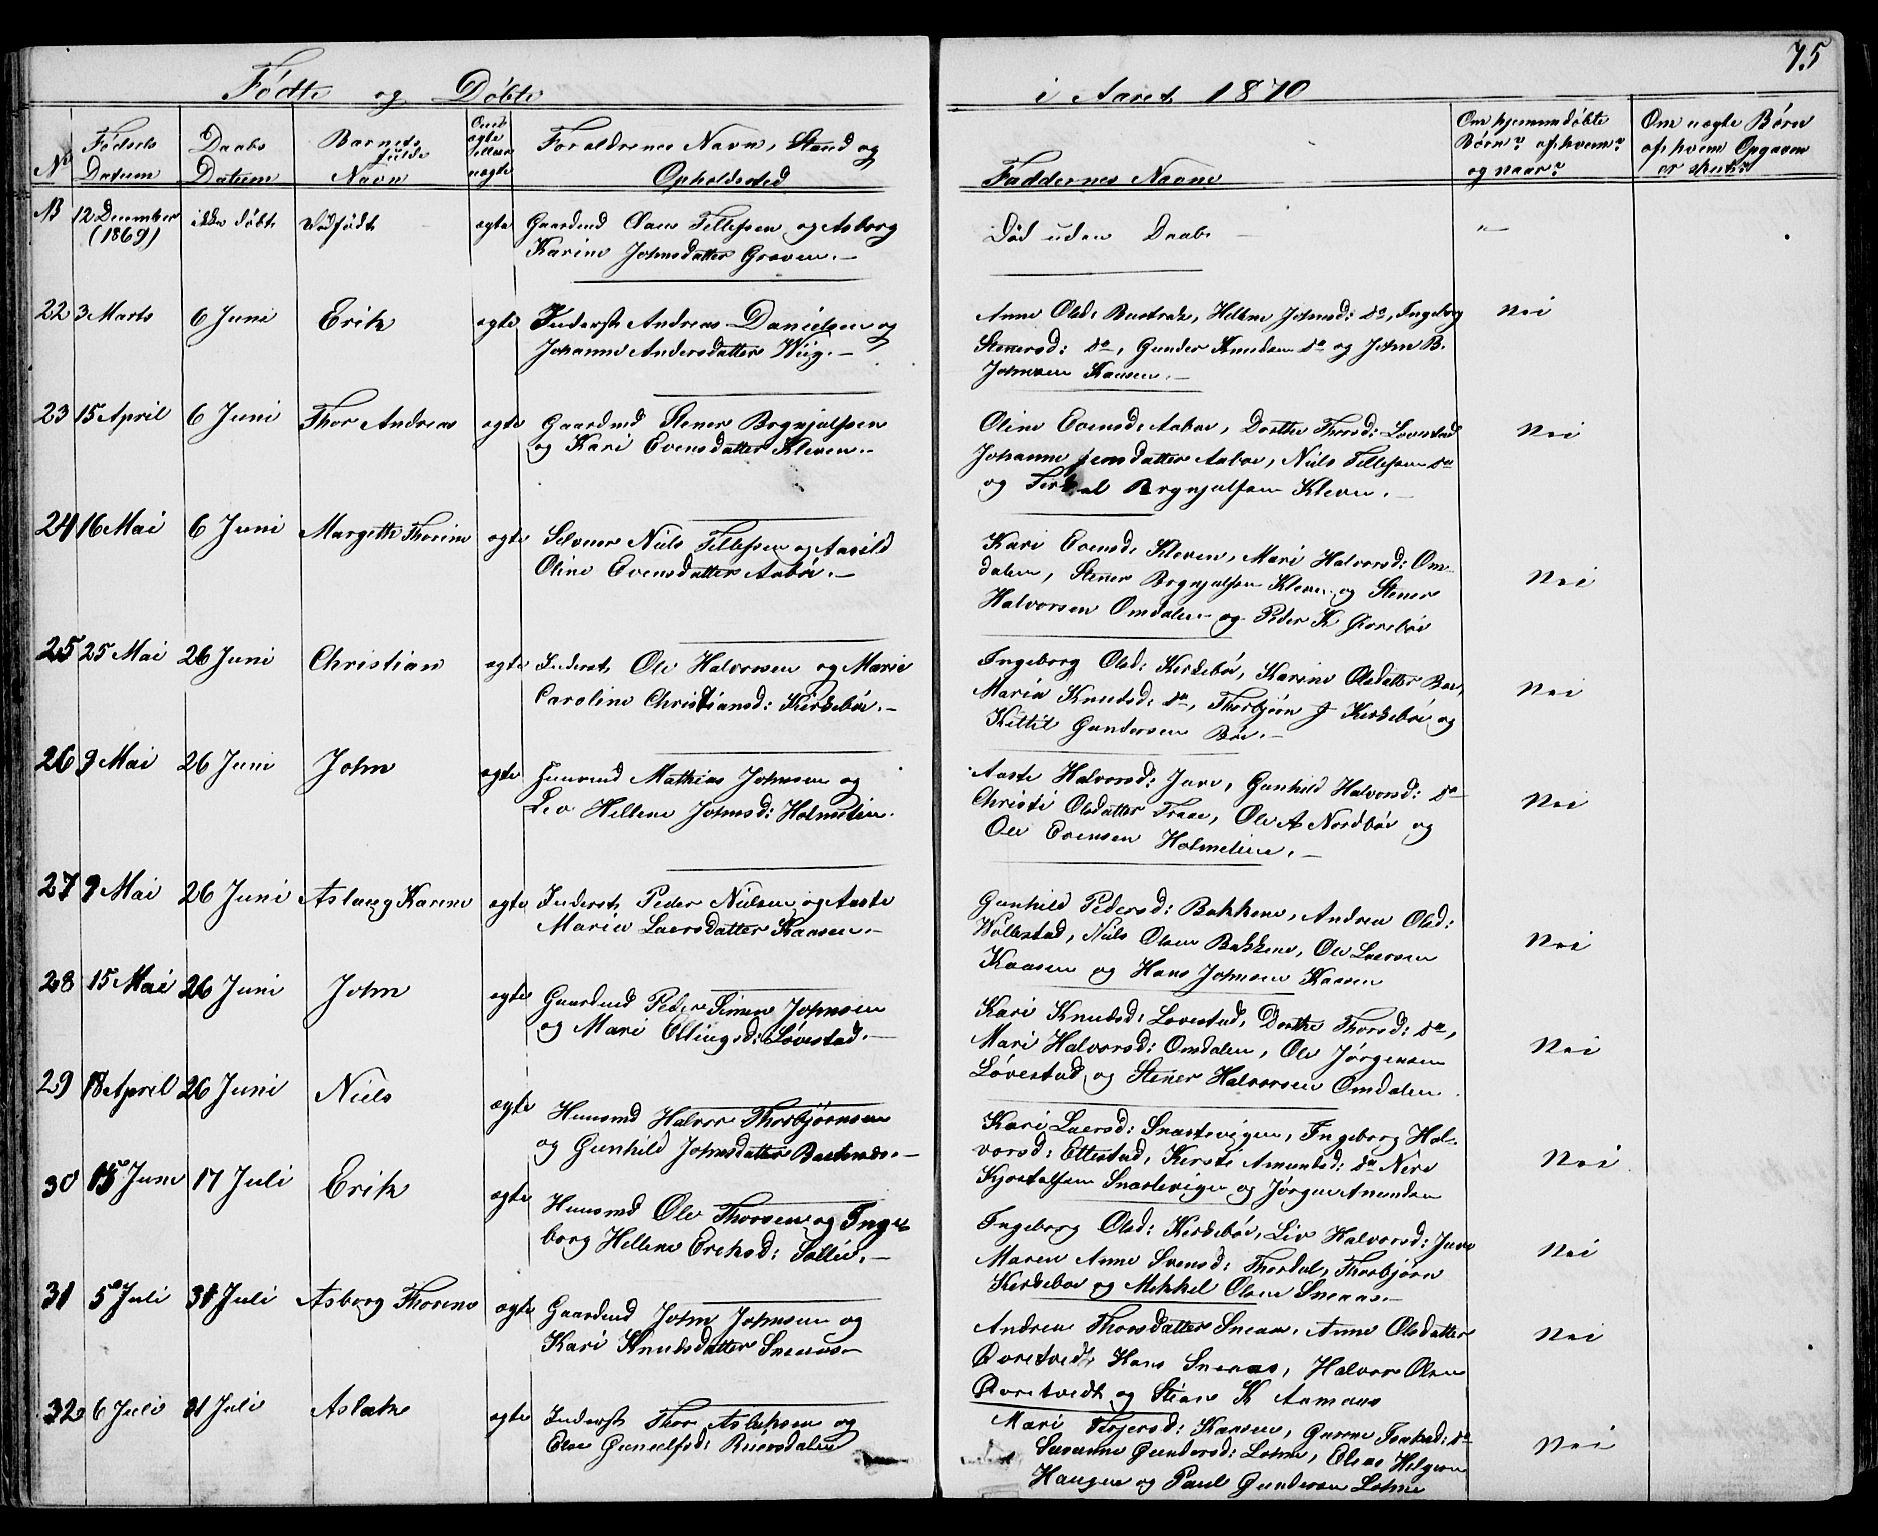 75
Födte og Döbte i Aaret 1870
No
Födsels Datum
Daabs Datum
Barnets fulde Navn
ægte uægte
Forældrenes Navn, Stand og Opholdssted
Faddernes Navne
Om hjemmedöbte Börn? af hvem? og naar?
Om uægte Börn af hvem Opgaven er skeet?
12 December (1869) ikke döbt Dödfödt ægte Gaardmd Claus Tellefsen og Asborg
Karine Johnsdatter Graven.—
Död uden Daab —
22 3 Marts 6 Juni Erik ægte Inderst Andreas Danielsen og
Johanne Andersdatter Wiig.—
Anne Olsd: Hellene Johnsd: Do, Ingeborg
Stenersd: Do, Gunder Knudsen Do og John B.
Johnsen Kaasen.— Nei
23 15 April 6 Juni Thor Andreas ægte Gaardmd Stener Brynjulfsen
og Kari Evensdatter Kleven.—
Oline Evensd: Aaboe, Dorthe Thorsd: Lovestad
Johanne Jensdatter Aaboe, Niels Tellefsen Do
og Brynjulfsen Kleven.— Nei
24 16 Mai 6 Juni Margethe Thorine ægte Selveier Niels Tellefsen og Aasild
Oline Evensdatter Aaböe.—
Kari Evensd: Kleven, Mari Halvorsd: Om-
dalen, Stener Brynjulfsen Kleven og Stener
Halvorsen Omdalen og Peder K Nei
25 25 Mai 26 Juni Christian ægte Inderst Ole Halvorsen og Marie
Caroline Christiansd: Kirkeböe.—
Ingeborg Olsd: Kirkeböe, Karine Olsdatter Böe,
Maria Knudsd: Do, Thorbjörn J Kirkeböe og
Kittil Gundersen Böe.— Nei
26 9 Mai 26 Juni John ægte Huusmd Mathias Johnsen og
Liv Hellene Johnsd: Holmelien.
Aaste Halvorsd: Juve, Gunhild Halvorsd: Do
Christi Olsdatter Traae, Ole A Nordböe og
Ole Evensen Holmelien.— Nei
27 9 Mai 26 Juni Aslaug Karine ægte Inderst Peder Nielsen og Aaste
Maria Laersdatter Kaasen.—
Gunhild Pedersd: Bakkene, Andrea Olsd:
Wollestad, Niels Olsen Bakkene, Ole Laersen
Kaasen og Hans Johnsen Kaasen Nei
28 15 Mai 26 Juni John ægte Gaardmd Peder Simen Johnsen
og Mari Ellingsd: Lövestad.—
Kari Knudsd: Lovestad, Dorthe Thorsd: Do,
Mari Halvorsd: Omdalen, Ole Jörgensen
Lövestad og Stener Halvorsen Omdalen Nei
29 18 April 26 Juni Niels ægte Huusmd Halvor Thorbjörnsen
og Gunhild Johnsdatter
Kari Laersd: Snartevigen, Ingeborg Hal-
vorsd: Ettestad, Kirsti Amundsd: Do Neri
Kjostolfsen Snartevigen og Jörgen Amundsen Nei
30 15 Juni 17 Juli Erik ægte Huusmd Ole Thorsen og Inge-
borg Hellene Ereksd: Sollie.—
Ingeborg Olsd: Kirkeböe, Liv Halvorsd: Juve
Maren Anne Svensd: Thordal, Thorbjörn
Kirkeboe og Mikkel Olsen Sneaas.— Nei
31 5 Juli 31 Juli Asborg Thorine ægte Gaardmd John Johnsen og
Kari Knudsdatter Sneaas.—
Andrea Thorsdatter Sneaas, Anne Olsdatter
Qvretvedt, Hans Sneaas, Halvor Olsen
Qvretvedt og K Aamaas Nei
32 6 Juli 31 Juli Aslak ægte Inderst Thor Aslaksen og
Else Gunulfsd: Ruiersdalen
Mari Terjersd: Kaasen, Gurene Isaksd: Do
Susanne Gundersd: Lohne, Elias Helgesen
Haugen og Paul Gundersen Lohne Nei